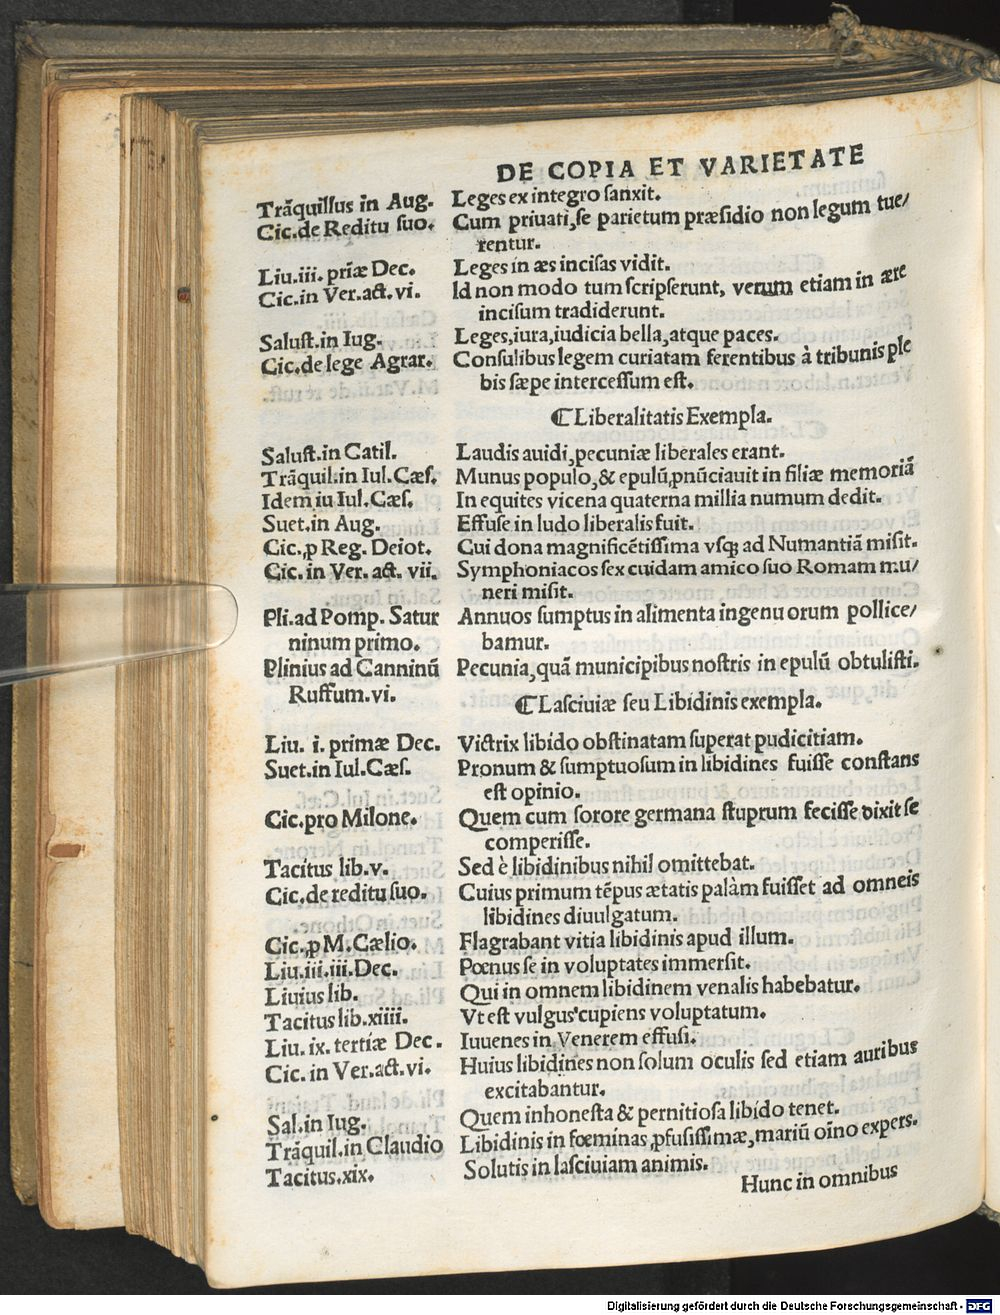 DE COPIA ET VARIETATE
Trāquillus in Aug. Leges ex integro ſanxit.
Cic.de Reditu ſuo. Cum priuati,ſe parietum præſidio non legum tue/
rentur.
Liu.iii. priæ Dec. Leges in æs inciſas vidit.
Cic.in Ver.act.vi. Id non modo tum ſcripſerunt, verum etiam in ære
inciſum tradiderunt.
Saluſt.in Iug. Leges,iura,iudicia bella,atque paces.
Cic.de lege Agrar. Conſulibus legem curiatam ferentibus à tribunis ple
bis ſæpe interceſſum eſt.
⸿ Liberalitatis Exempla.
Saluſt.in Catil. Laudis auidi,pecuniæ liberales erant.
Trāquil.in Iul.Cæſ. Munus populo,& epulū,ꝓnūciauit in filiæ memoriā
Idem iu Iul.Cæſ. In equites vicena quaterna millia numum dedit.
Suet.in Aug. Effuſe in ludo liberalis fuit.
Cic.,ꝓ Reg. Deiot. Cui dona magnificētiſſima vſqꝫ ad Numantiā miſit.
Cic. in Ver. act. vii. Symphoniacos ſex cuidam amico ſuo Romam mu/
neri miſit.
Pli.ad Pomp. Satur Annuos ſumptus in alimenta ingenuorum pollice/
ninum primo. bamur.
Plinius ad Canninū Pecunia,quā municipibus noſtris in epulū obtuliſti.
Ruffum.vi.
⸿ Laſciuiæ ſeu Libidinis exempla.
Liu. i. primæ Dec. Victrix libido obſtinatam ſuperat pudicitiam.
Suet.in Iul.Cæſ. Pronum & ſumptuoſum in libidines fuiſſe conſtans
eſt opinio.
Cic.pro Milone. Quem cum ſorore germana ſtuprum feciſſe dixit ſe
comperiſſe.
Tacitus lib.v. Sed è libidinibus nihil omittebat.
Cic.de reditu ſuo. Cuius primum tēpus ætatis palàm fuiſſet ad omneis
libidines diuulgatum.
Cic.ꝓ M.Cælio. Flagrabant vitia libidinis apud illum.
Liu.iii.iii.Dec. Pœnus ſe in voluptates immerſit.
Liuius lib. Qui in omnem libidinem venalis habebatur.
Tacitus lib.xiiii. Vt eſt vulgus cupiens voluptatum.
Liu. ix. tertiæ Dec. Iuuenes in Venerem effuſi.
Cic. in Ver.act.vi. Huius libidines non ſolum oculis ſed etiam auribus
excitabantur.
Sal.in Iug. Quem inhoneſta & pernitioſa libido tenet.
Trāquil.in Claudio Libidinis in fœminas,ꝓfuſiſſimæ,mariū oīno expers.
Tacitus.xix. Solutis in laſciuiam animis.
Hunc in omnibus
Digitalisierung gefördert durch die Deutsche Forschungsgemeinschaft - DFG